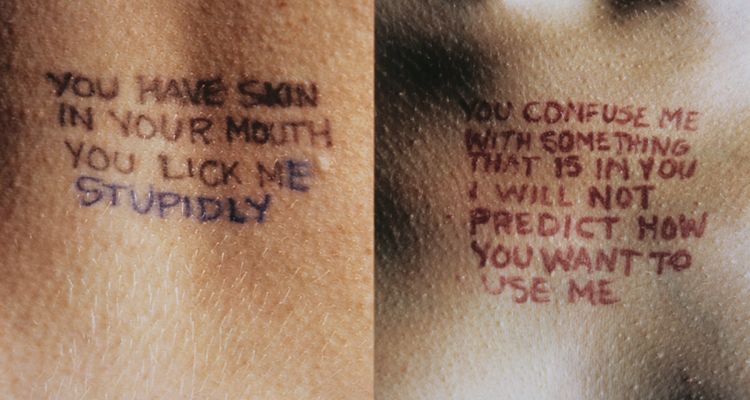 YOU HAVE SKIN
IN YOUR MOUTH
YOU LICK ME
STUPIDLY
YOU CONFUSE ME
WITH SOMETHING
THAT IS IN YOU
I WILL NOT
PREDICT HOW
YOU WANT TO
USE ME